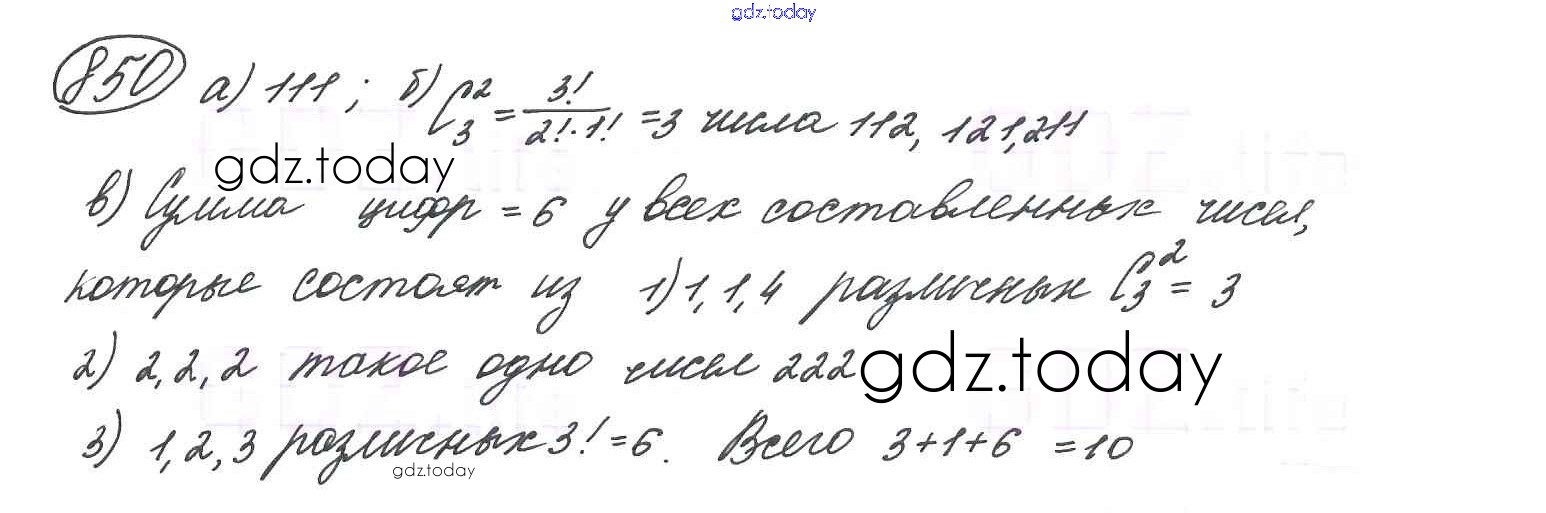 gdz.today
850 а) 111 ; б) C₃² = 3!/(2!·1!) = 3 числа 112, 121, 211
gdz.today
в) Сумма цифр = 6 у всех составленных чисел,
которые состоят из 1) 1,1,4 различных C₃² = 3
2) 2,2,2 такое одно чисел 222 gdz.today
3) 1,2,3 различных 3! = 6. Всего 3+1+6 = 10
gdz.today